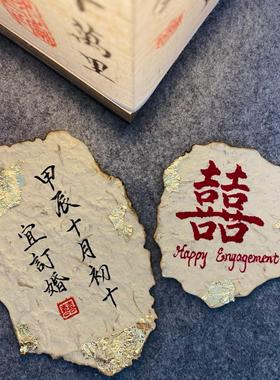 萬里
甲辰十月初十
宜訂婚
囍
囍
Happy Engagement